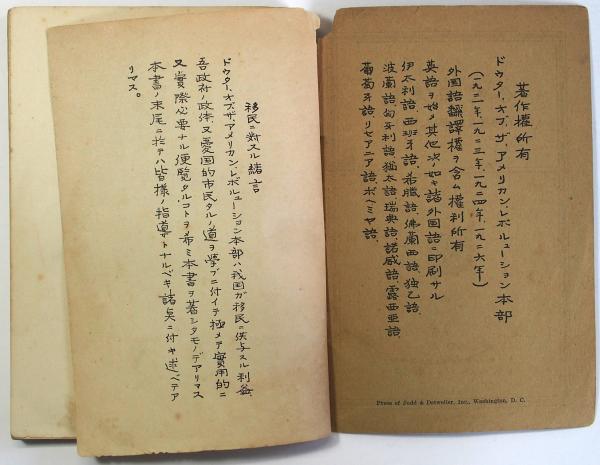 著作權所有
ドウターオブ、ザ、アメリカン、レボルューション本部
(一九二一年、一九二三年、一九二四年、一九二六年)
外国語飜譯權ヲ含ム權利所有
英語ヲ始メ其他次如キ諸外国語ニ印刷サル
伊太利語、西班牙語、希臘語、佛蘭西語、独乙語、
波蘭語、匈牙利語、猶太語、瑞典語、諾威語、露西亜語、
葡萄牙語、リセアニア語、ボヘミヤ語、
Press of Judd & Detweiler, Inc., Washington, D. C.
移民ニ對スル緒言
ドウターオブザアメリカン、レボルューション本部ハ我国ガ移民ニ供与スル利益、
吾政府ノ政体又愛国的市民タルノ道ヲ學ブニ付イテ極メテ實用的ニ
又實際必要ナル便覧タルコトヲ希ミ本書ヲ著シタモノデアリマス
本書ノ末尾ニ於テハ皆様ノ指導トナルベキ諸点ニ付キ述ベテア
リマス。